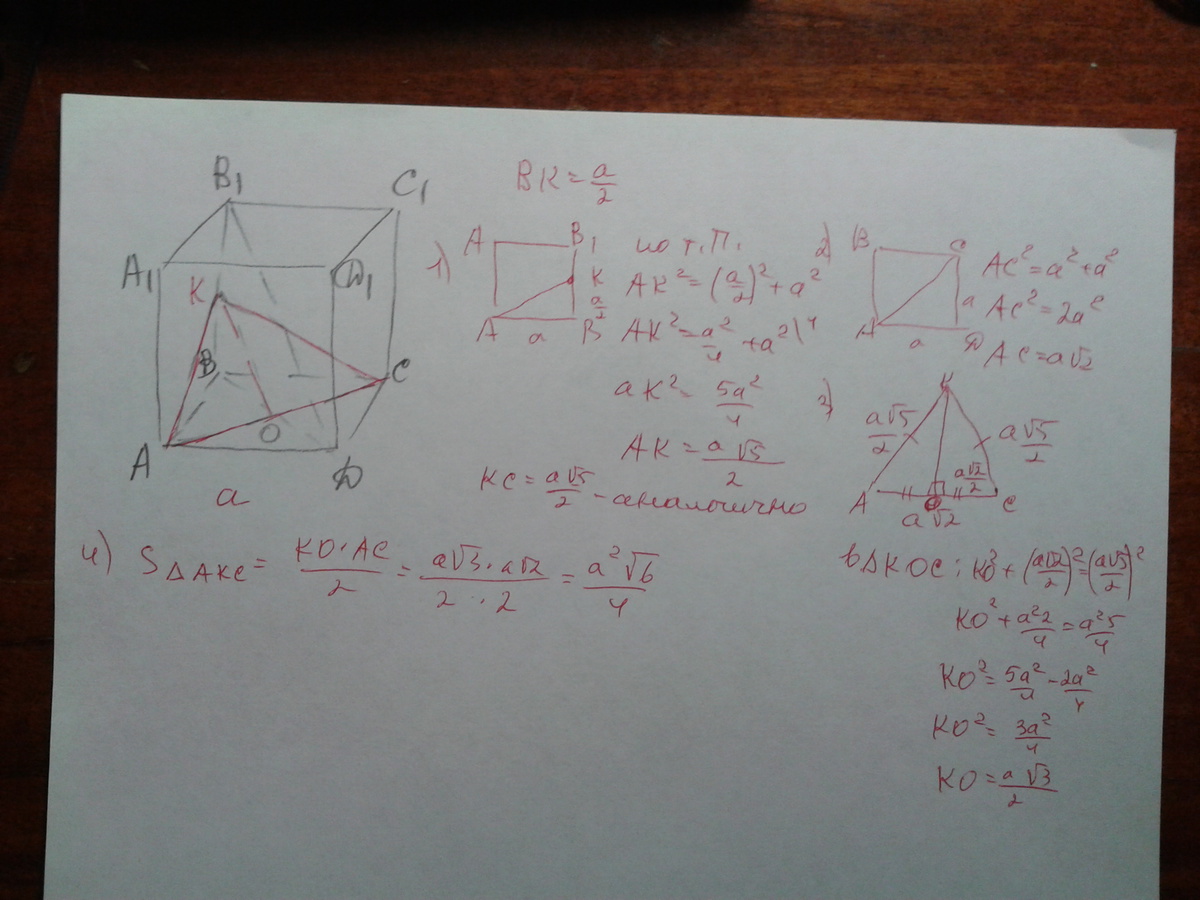 B₁
C₁
A₁
D₁
K
B
C
O
A
D
a
BK = a/2
1)
A
B₁
K
a/2
A
a
B
по т.П.
AK² = (a/2)² + a²
AK² = a²/4 + a² \4
aK² = 5a²/4
AK = a√5/2
KC = a√5/2 - аналогично
2)
B
C
a
A
a
D
AC² = a² + a²
AC² = 2a²
AC = a√2
3)
K
a√5/2
a√5/2
a√2/2
A
O
C
a√2
в ΔKOC: KO² + (a√2/2)² = (a√5/2)²
KO² + a²2/4 = a²5/4
KO² = 5a²/4 - 2a²/4
KO² = 3a²/4
KO = a√3/2
4) SΔAKC = KO·AC/2 = a√3·a√2/2·2 = a²√6/4